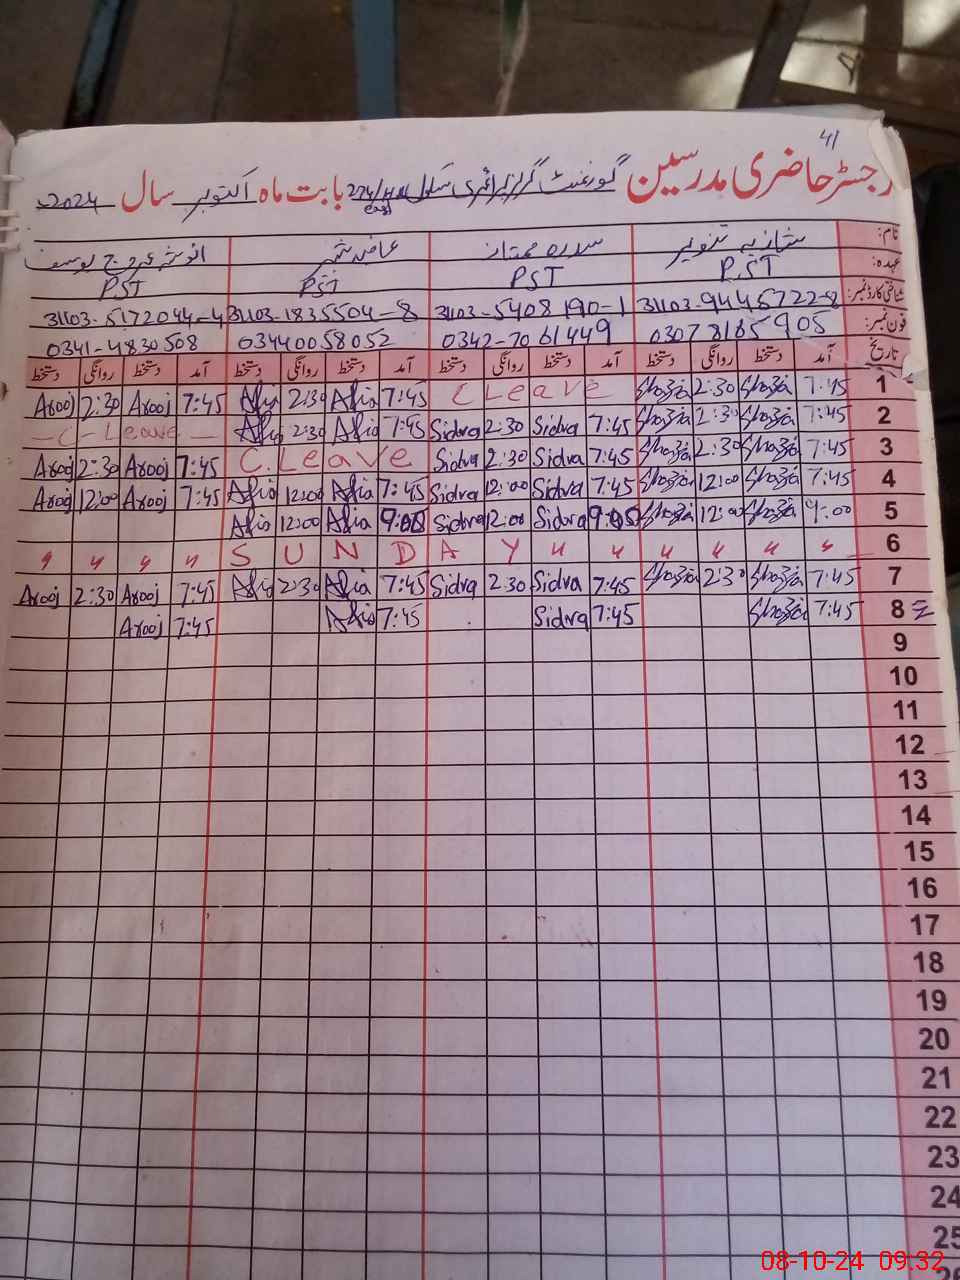 41
رجسٹر حاضری مدرسین گورنمنٹ گرلز پرائمری سکول بابت ماہ اکتوبر سال 2024
نام: شازیہ تنویر سدرہ ممتاز عافیہ انوشہ عروج یوسف
عہدہ: PST PST PST PST
شناختی کارڈ نمبر: 31103-9445722-8 31103-5408190-1 31103-1835504-8 31103-5172044-4
فون نمبر: 03078165905 0342-7061449 03440058052 0341-4830508
تاریخ آمد دستخط روانگی دستخط آمد دستخط روانگی دستخط آمد دستخط روانگی دستخط آمد دستخط روانگی دستخط
1 7:45 Shazia 2:30 Shazia C Leave 7:45 Afia 2:30 Afia 7:45 Arooj 2:30 Arooj
2 7:45 Shazia 2:30 Shazia 7:45 Sidra 2:30 Sidra 7:45 Afia 2:30 Afia - C - Leave -
3 7:45 Shazia 2:30 Shazia 7:45 Sidra 2:30 Sidra C. Leave 7:45 Arooj 2:30 Arooj
4 7:45 Shazia 12:00 Shazia 7:45 Sidra 12:00 Sidra 7:45 Afia 12:00 Afia 7:45 Arooj 12:00 Arooj
5 9:00 Shazia 12:00 Shazia 9:05 Sidra 12:00 Sidra Afia 12:00 Afia
6 " " " " S U N D A Y " " " " " "
7 7:45 Shazia 2:30 Shazia 7:45 Sidra 2:30 Sidra 7:45 Afia 2:30 Afia 7:45 Arooj 2:30 Arooj
8 7:45 Shazia 7:45 Sidra 7:45 Afia 7:45 Arooj
9
10
11
12
13
14
15
16
17
18
19
20
21
22
23
24
25
08-10-24 09:32